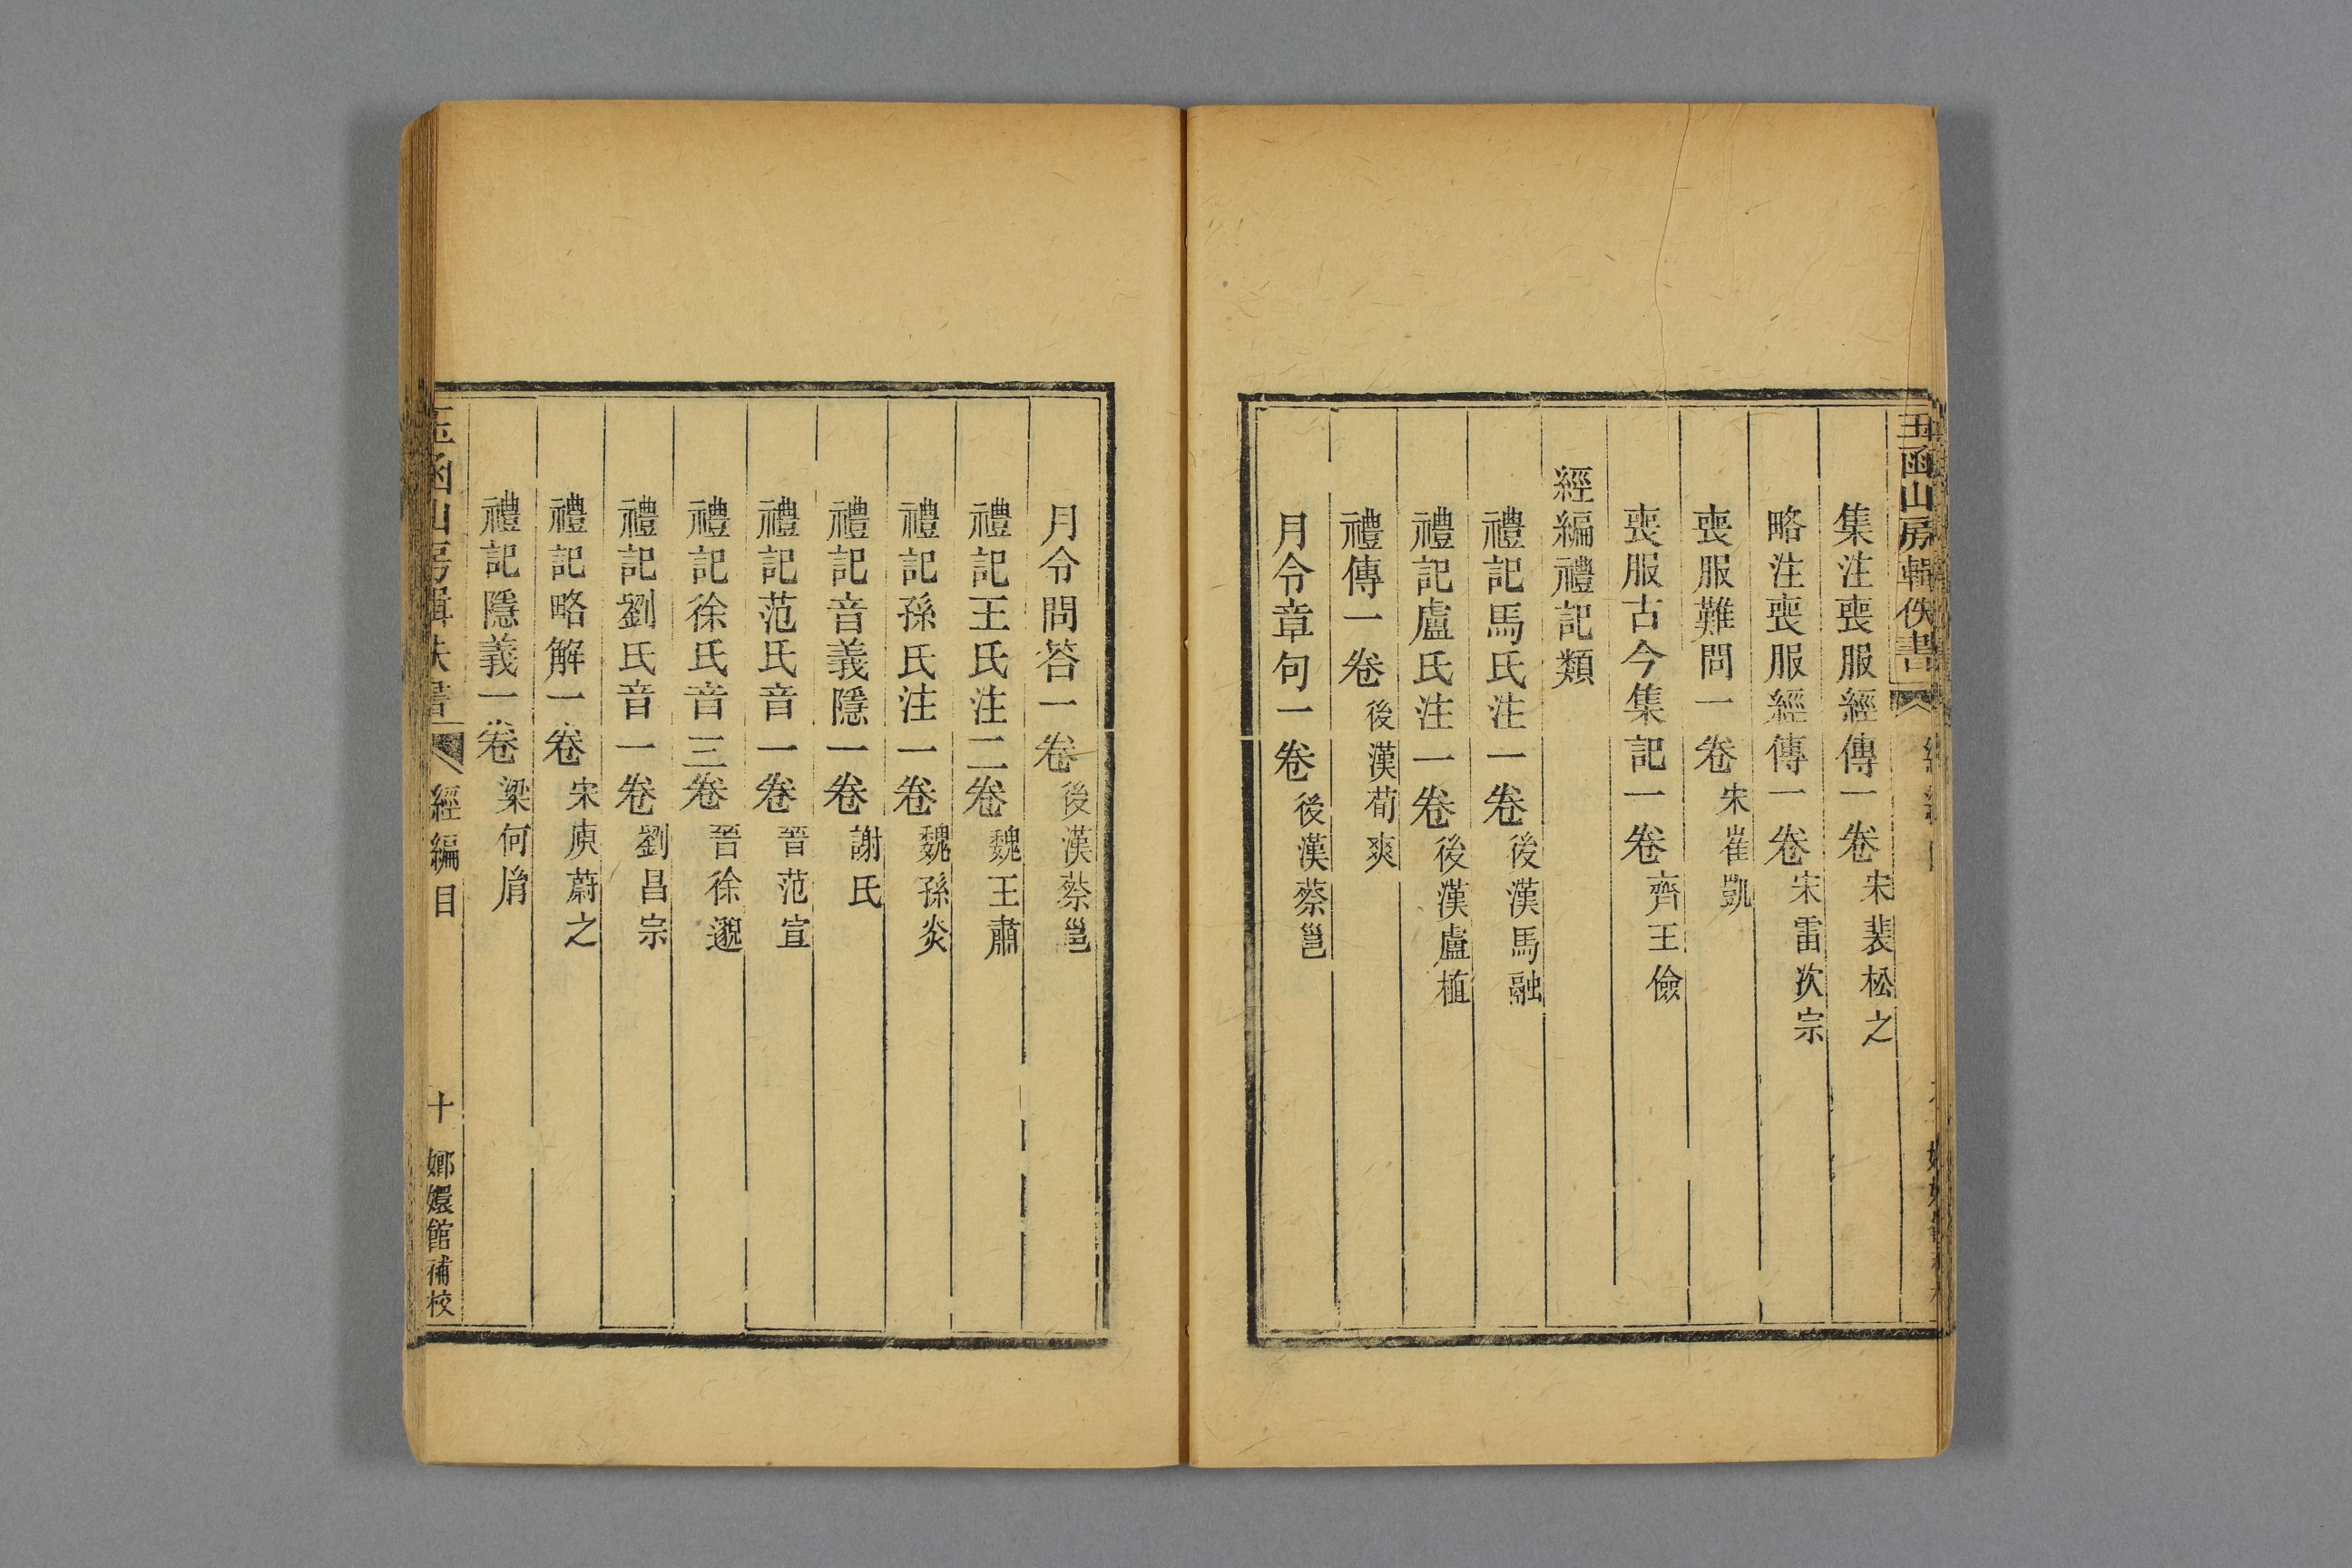 玉函山房輯佚書
集注喪服經傳一卷 宋裴松之
略注喪服經傳一卷 宋雷次宗
喪服難問一卷 宋崔凱
喪服古今集記一卷 齊王儉
經編禮記類
禮記馬氏注一卷 後漢馬融
禮記盧氏注一卷 後漢盧植
禮傳一卷 後漢荀爽
月令章句一卷 後漢蔡邕
月令問答一卷 後漢蔡邕
禮記王氏注二卷 魏王肅
禮記孫氏注一卷 魏孫炎
禮記音義隱一卷 謝氏
禮記范氏音一卷 晉范宣
禮記徐氏音三卷 晉徐邈
禮記劉氏音一卷 劉昌宗
禮記略解一卷 宋庾蔚之
禮記隱義一卷 梁何胤
玉函山房輯佚書 經編目 十 嫏嬛館補校